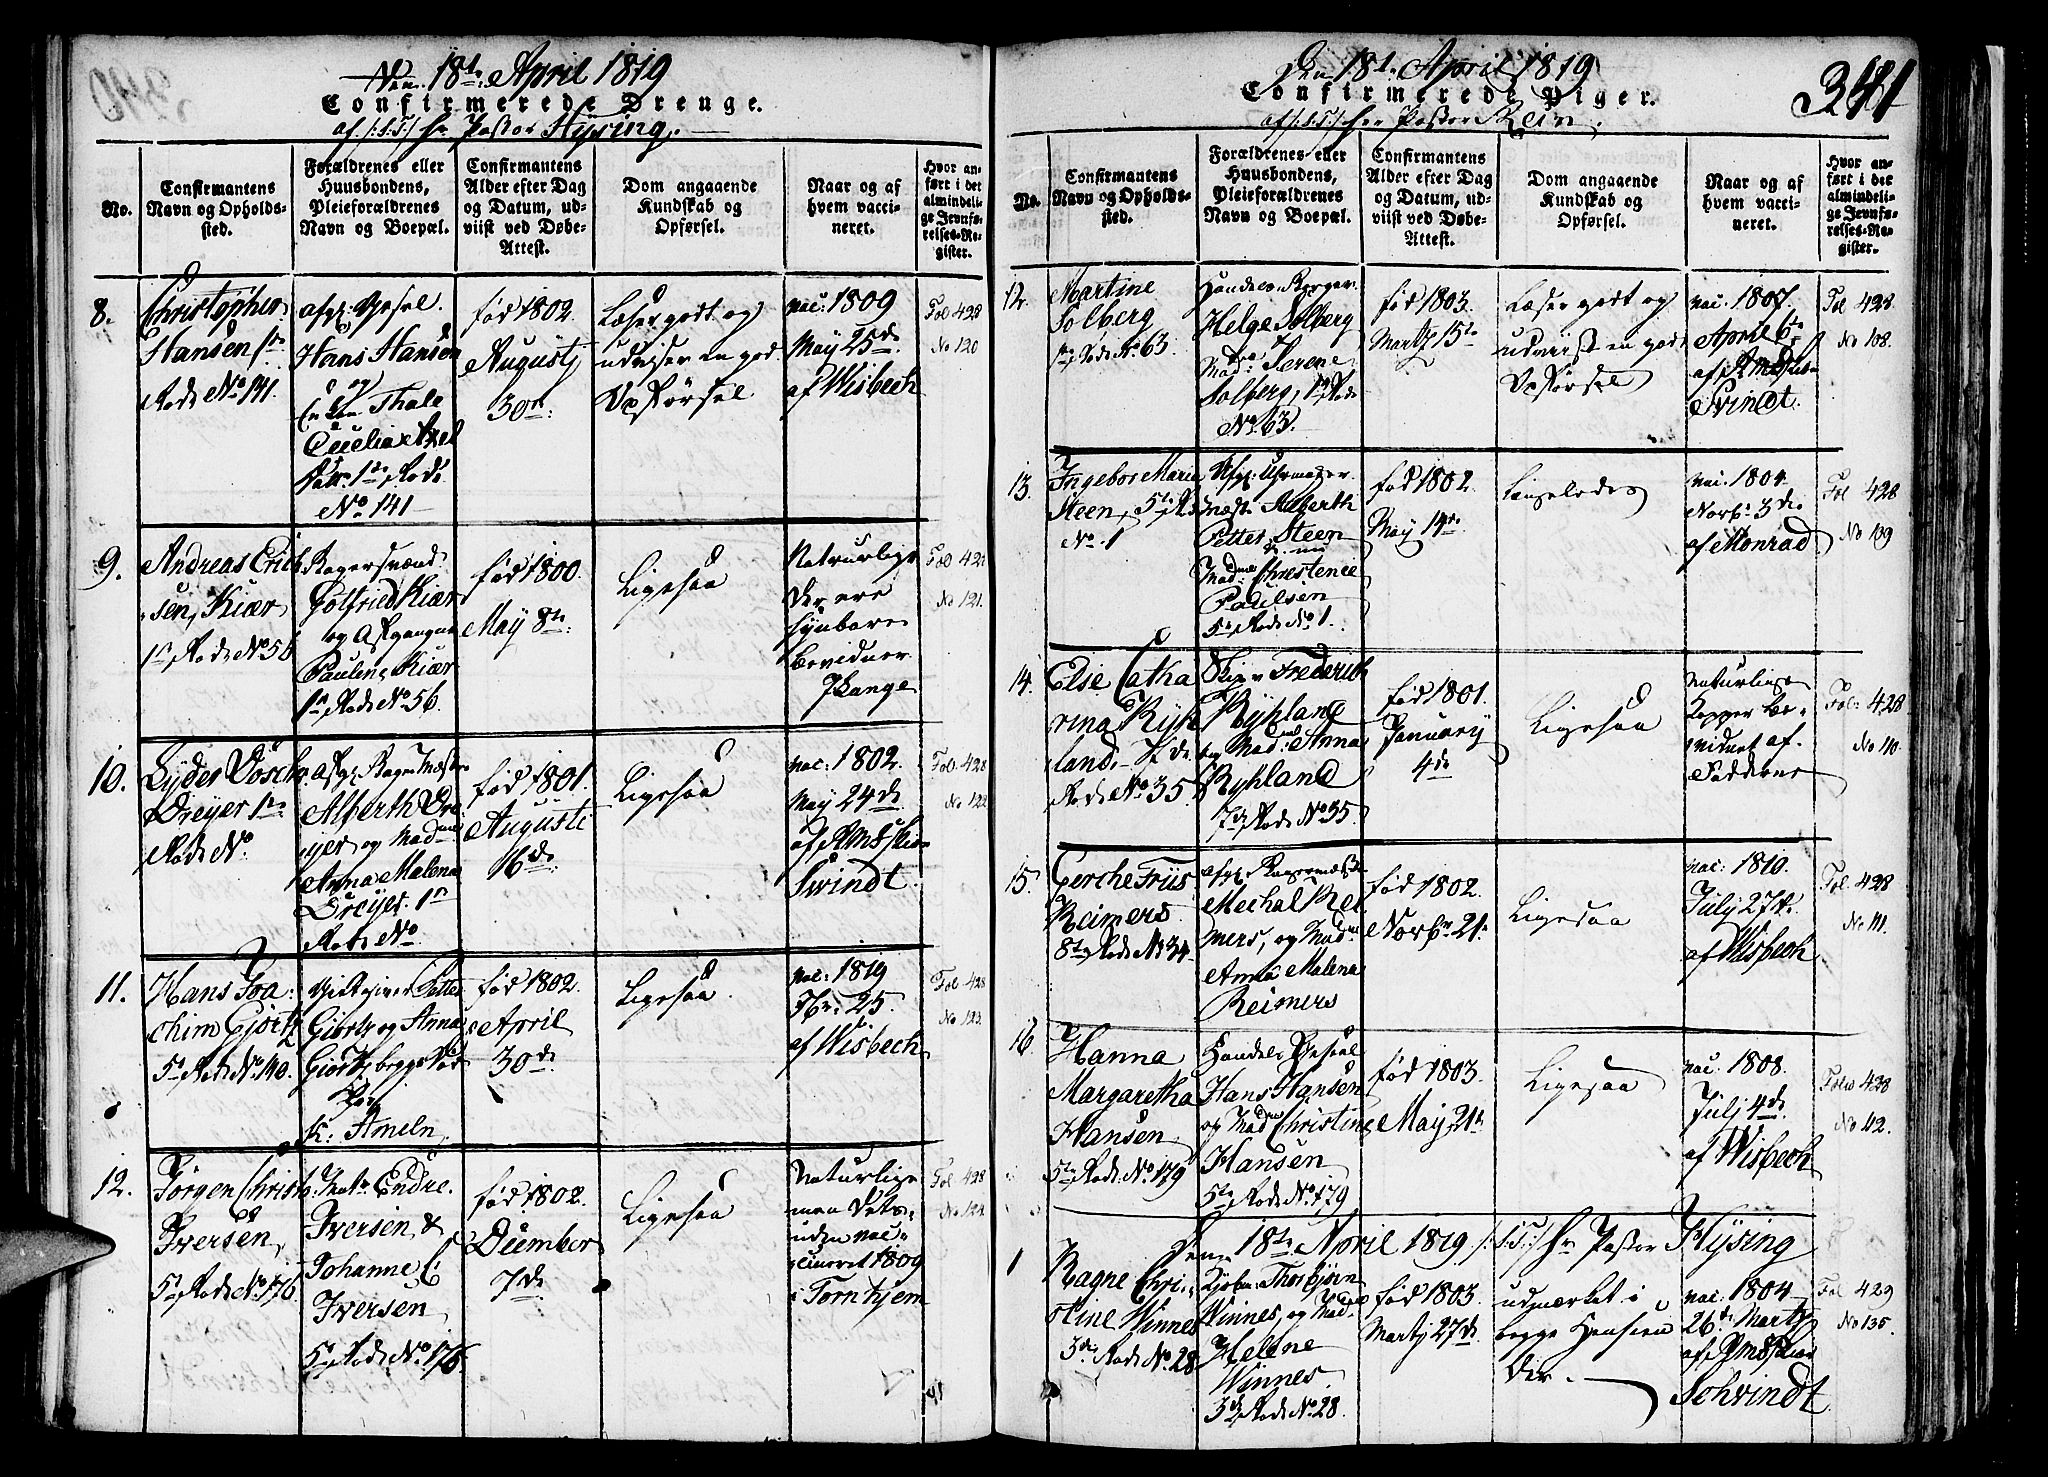 340
Den 18de April 1819
Confirmerede Drenge.
af /:S:T:/ Hr Pastor Hysing.
No.
Confirmantens
Navn og Opholds-
sted.
Forældrenes eller
Huusbondens,
Pleieforældrenes
Navn og Boepæl.
Confirmantens
Alder efter Dag
og Datum, ud-
viist ved Døbe-
Attest.
Dom angaaende
Kundskab og
Opførsel.
Naar og af
hvem vacci-
neret.
Hvor an-
ført i det
almindeli-
ge Jevnfø-
relses-Re-
gister.
8.
Christopher
Hansen 1ste
Rode No 141.
Hans Hansen
og
Thale
Cecilia
1ste Rode
No 141
fød 1802.
Augustj
30te
Læser godt og
udviser en god
Opførsel
vac: 1809
May 25de
af Wisbech
Fol 428
No 120
9.
Andreas Erich
sen Kiær
1ste Rode No 56
Bagersvend
Gotfried Kiær
og Afgangne
Pauline Kiær
1ste Rode No 56.
fød 1800.
May 8te
Ligesaa
Naturlige
Der ere
synbare
bevidner
JLange
Fol 428
No 121.
10.
Lyder Vosch
Dreyer 1ste
Rode No
Alberth Dre
ijer og Mad:
Anna Malena
Dreyer. 1ste
Rode No
fød 1801.
Augusti
16de
Ligesaa
vac: 1802.
May 24de
af
Swindt
Fol. 428
No 122
11.
Hans Joa
chim Gjørtz
5te Rode No 140.
Petter
Giørtz og Anna
Giørtz begge
K: Ameln
fød 1802.
April
30de
Ligesaa
vac: 1819
25
af Wisbech
Fol 428
No 123.
12.
Jørgen Christ
Iversen,
5te Rode No 176.
Endre
Iversen &
Johanne C
Iversen
5te Rode No 176
fød 1802.
December
7de
Ligesaa
Naturlige
men
uden vac-
cineret 1809
i Tornhjem
Fol 428
No 124
Den 18de April 1819
341
Confirmerede Piger.
af /:S:T:/ Herr Pastor Rein.
No.
Confirmantens
Navn og Opholds-
sted.
Forældrenes eller
Huusbondens,
Pleieforældrenes
Navn og Boepæl.
Confirmantens
Alder efter Dag
og Datum, ud-
viist ved Døbe-
Attest.
Dom angaaende
Kundskab og
Opførsel.
Naar og af
hvem vacci-
neret.
Hvor an-
ført i det
almindeli-
ge Jevnfø-
relses-Re-
gister.
12.
Martine
Solberg
1ste Rode No 63.
Handels Borger
Helge Solberg
Mad: Serene
Solberg, 1ste Rode
No 63.
fød 1803.
Martj 15te
Læser godt og
udviist en god
Opførsel
vac. 1807.
April 6te
af
Svindt.
Fol 428
No 108.
13.
Ingebor Maria
Steen, 5te Rode
No. 1
Afg: Uhrmager
Alberth
Petter Steen
Mad: Christence
Paulsen
5te Rode No 1.
fød 1802.
May 14de
Ligeledes
vac. 1804.
Novbr 3de
af Monrad
Fol 428
No 109
14.
Else Catha
rina Ryk
land. 7de
Rode No 35
Skip: Frederich
Rykland
og Mad: Anna
Rykland
7de Rode No 35.
fød 1801.
January
4de
Ligesaa
Naturlige
Kopper be-
vidnet af
Fadderne
Fol: 428
No 110.
15.
Cerche Friis
Reimers
8te Rode No 34
afg:
Mechal Rei
mers, og Mad:
Anna Malena
Reimers
fød 1802.
Novbr 21.
Ligesaa
vac: 1810.
July 27de
af Wisbech
Fol. 428
No 111.
16.
Hanna
Margaretha
Hansen
5te Rode No 179
Handels
Hans Hansen
og Mad: Christine
Hansen
5te Rode No 179
fød 1803.
May 21de
Ligesaa
vac. 1808.
Julj 4de
af Wisbech
Folio 428
No 112.
Den 18de April 1819 /:S:T:/ Hr Pastor Hysing
1
Ragne Chri-
stine Winnes
3de Rode No 28
Kjøbm: Thorbjørn
Winnes, og Mad:
Helene
Winnes
3de Rode No 28.
fød 1803.
Martj 27de
udmærket i
begge Hensien
der.
vac. 1804
26de Martj
af
Schvindt
Fol 429
No 135.